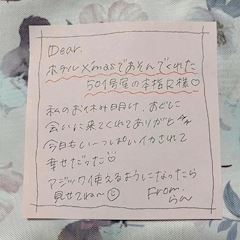 Dear.
ホテルXmasであそんでくれた
501号室の本指R様♡
私のお休み明け、すぐに
会いに来てくれてありがと
今日もいーっぱいイカされて
幸せだった♡
マジック使えるようになったら
見せてねー☺
From.
らん